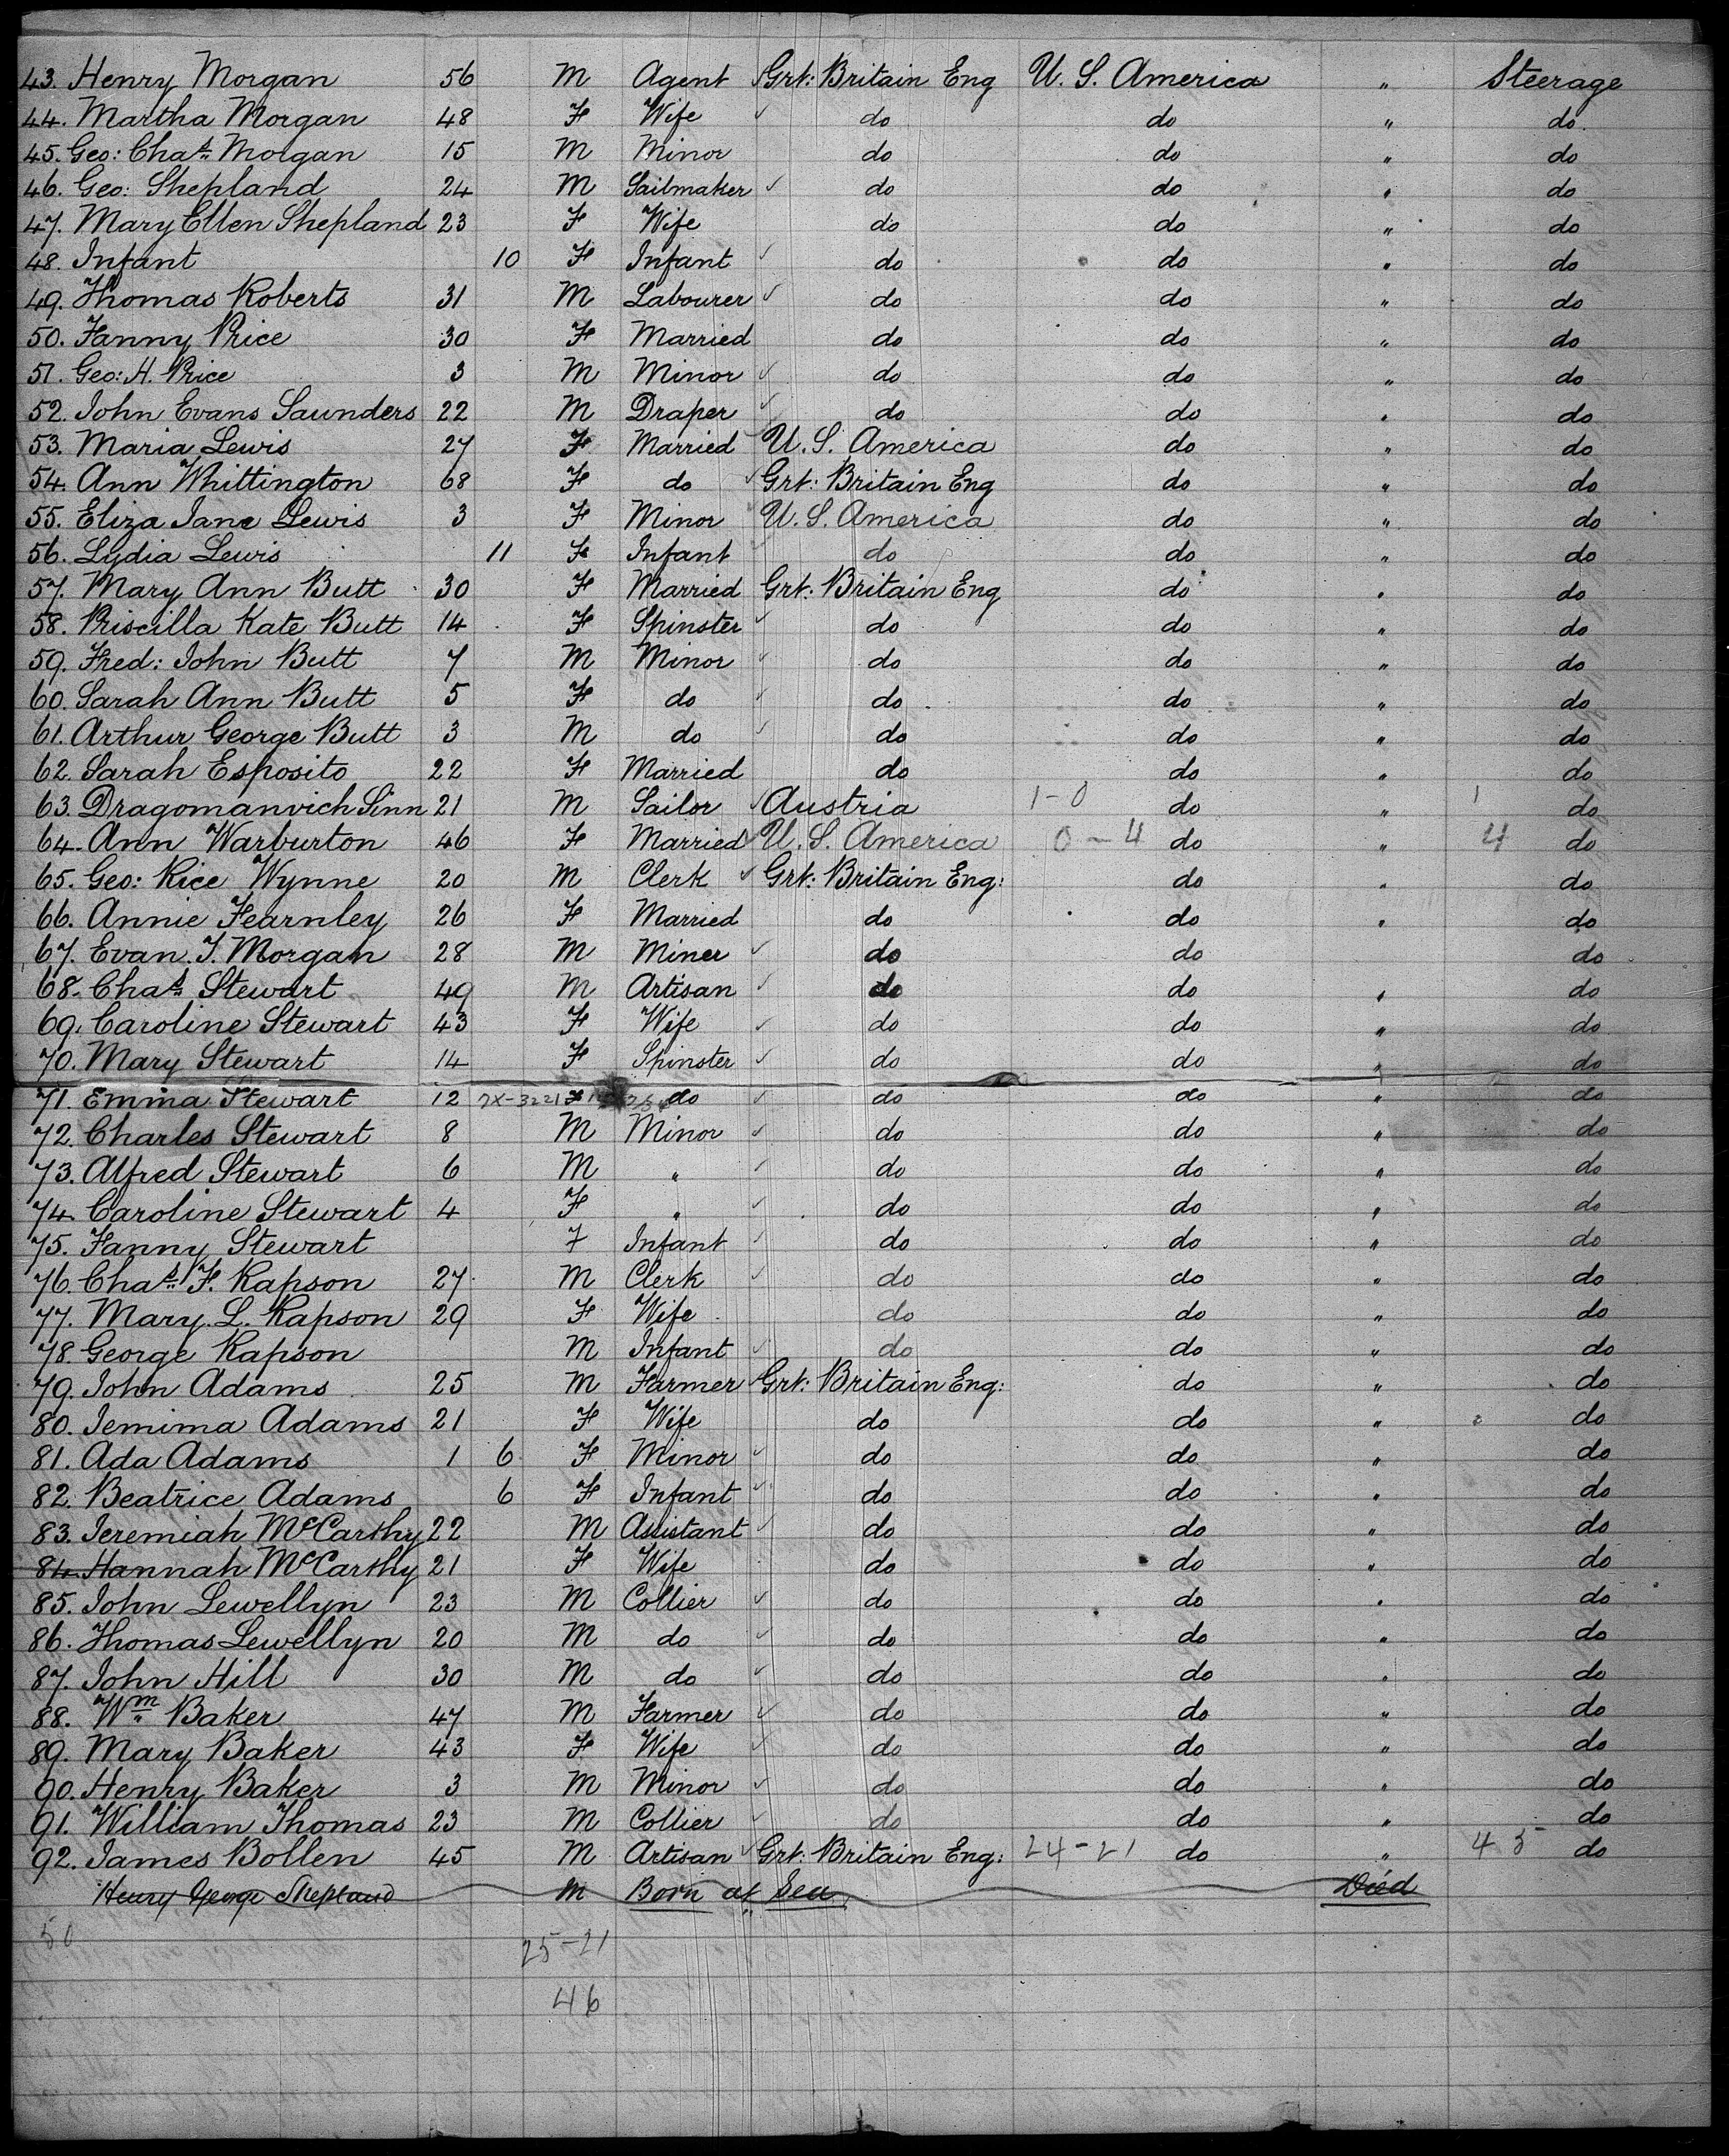 43. Henry Morgan 56 M Agent Grt: Britain Eng U. S. America " Steerage
44. Martha Morgan 48 F Wife do do " do
45. Geo: Chas. Morgan 15 M Minor do do " do
46. Geo: Shepland 24 M Sailmaker do do " do
47. Mary Ellen Shepland 23 F Wife do do " do
48. Infant 10 F Infant do do " do
49. Thomas Roberts 31 M Labourer do do " do
50. Fanny Price 30 F Married do do " do
51. Geo: H. Price 3 M Minor do do " do
52. John Evans Saunders 22 M Draper do do " do
53. Maria Lewis 27 F Married U. S. America do " do
54. Ann Whittington 68 F do Grt: Britain Eng do " do
55. Eliza Jane Lewis 3 F Minor U. S. America do " do
56. Lydia Lewis 11 F Infant do do " do
57. Mary Ann Butt 30 F Married Grt: Britain Eng do " do
58. Priscilla Kate Butt 14 F Spinster do do " do
59. Fred: John Butt 7 M Minor do do " do
60. Sarah Ann Butt 5 F do do do " do
61. Arthur George Butt 3 M do do do " do
62. Sarah Esposito 22 F Married do do " do
63. Dragomanvich Sinn 21 M Sailor Austria 1-0 do " 1 do
64. Ann Warburton 46 F Married U. S. America 0-4 do " 4 do
65. Geo: Rice Wynne 20 M Clerk Grt: Britain Eng: do " do
66. Annie Fearnley 26 F Married do do " do
67. Evan. T. Morgan 28 M Miner do do do
68. Chas. Stewart 49 M Artisan do do " do
69. Caroline Stewart 43 F Wife do do " do
70. Mary Stewart 14 F Spinster do do " do
71. Emma Stewart 12 7X-3221 F do do do " do
72. Charles Stewart 8 M Minor do do " do
73. Alfred Stewart 6 M " do do " do
74. Caroline Stewart 4 F " do do " do
75. Fanny Stewart F Infant do do " do
76. Chas. F. Rapson 27 M Clerk do do " do
77. Mary. L. Rapson 29 F Wife do do " do
78. George Rapson M Infant do do " do
79. John Adams 25 M Farmer Grt: Britain Eng: do " do
80. Jemima Adams 21 F Wife do do " do
81. Ada Adams 1 6 F Minor do do " do
82. Beatrice Adams 6 F Infant do do " do
83. Jeremiah McCarthy 22 M Assistant do do " do
84. Hannah McCarthy 21 F Wife do do " do
85. John Lewellyn 23 M Collier do do " do
86. Thomas Lewellyn 20 M do do do " do
87. John Hill 30 M do do do " do
88. Wm. Baker 47 M Farmer do do " do
89. Mary Baker 43 F Wife do do " do
90. Henry Baker 3 M Minor do do " do
91. William Thomas 23 M Collier do do " do
92. James Bollen 45 M Artisan Grt: Britain Eng: 24-21 do " 45 do
Henry George Shepland M Born at Sea Died
50
25-21
46